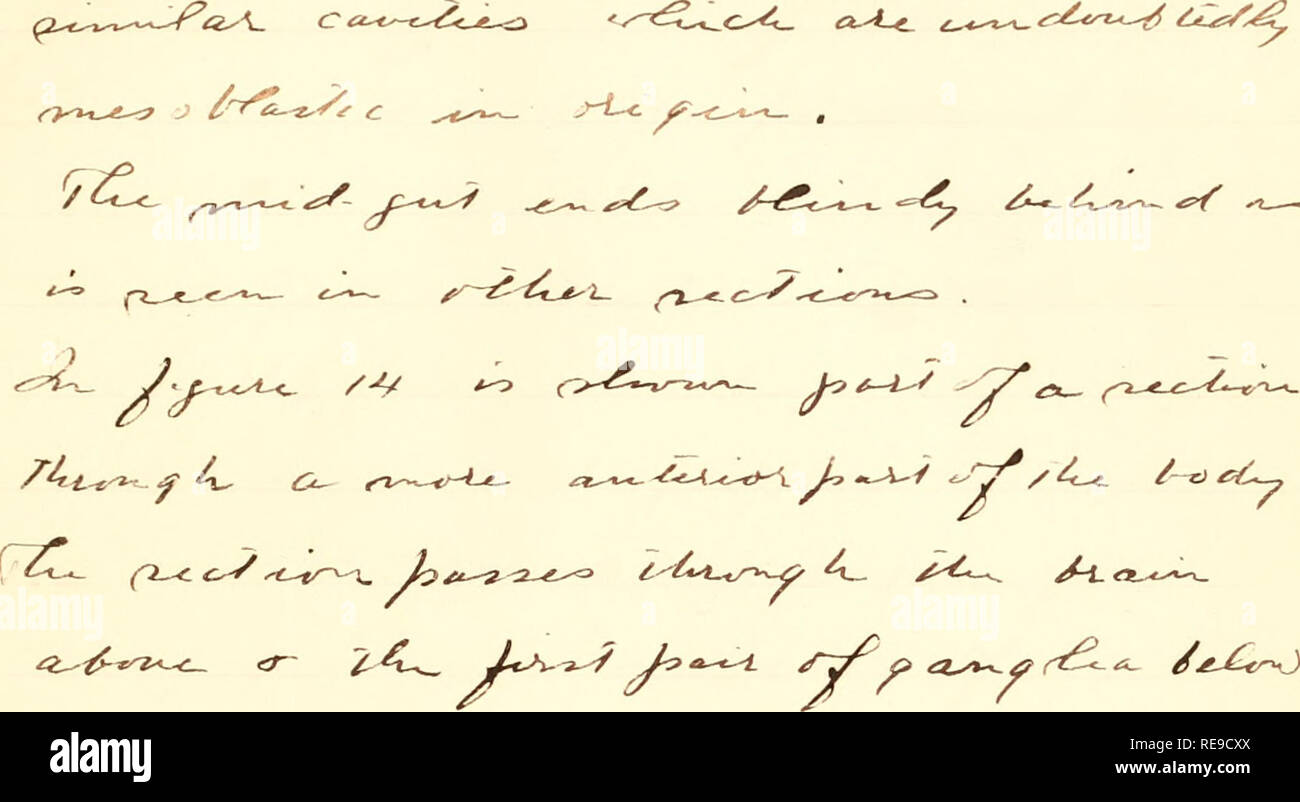 similar cavities which are undoubtedly
mesoblastic in origin.
The mid-gut ends blindy behind
is seen in other sections.
In figure 14 is shown part of a section
Through a more anterior part of the body
The section passes through the brain
above & the first pair of ganglia below
alamy
Image ID: RE9CXX
www.alamy.com